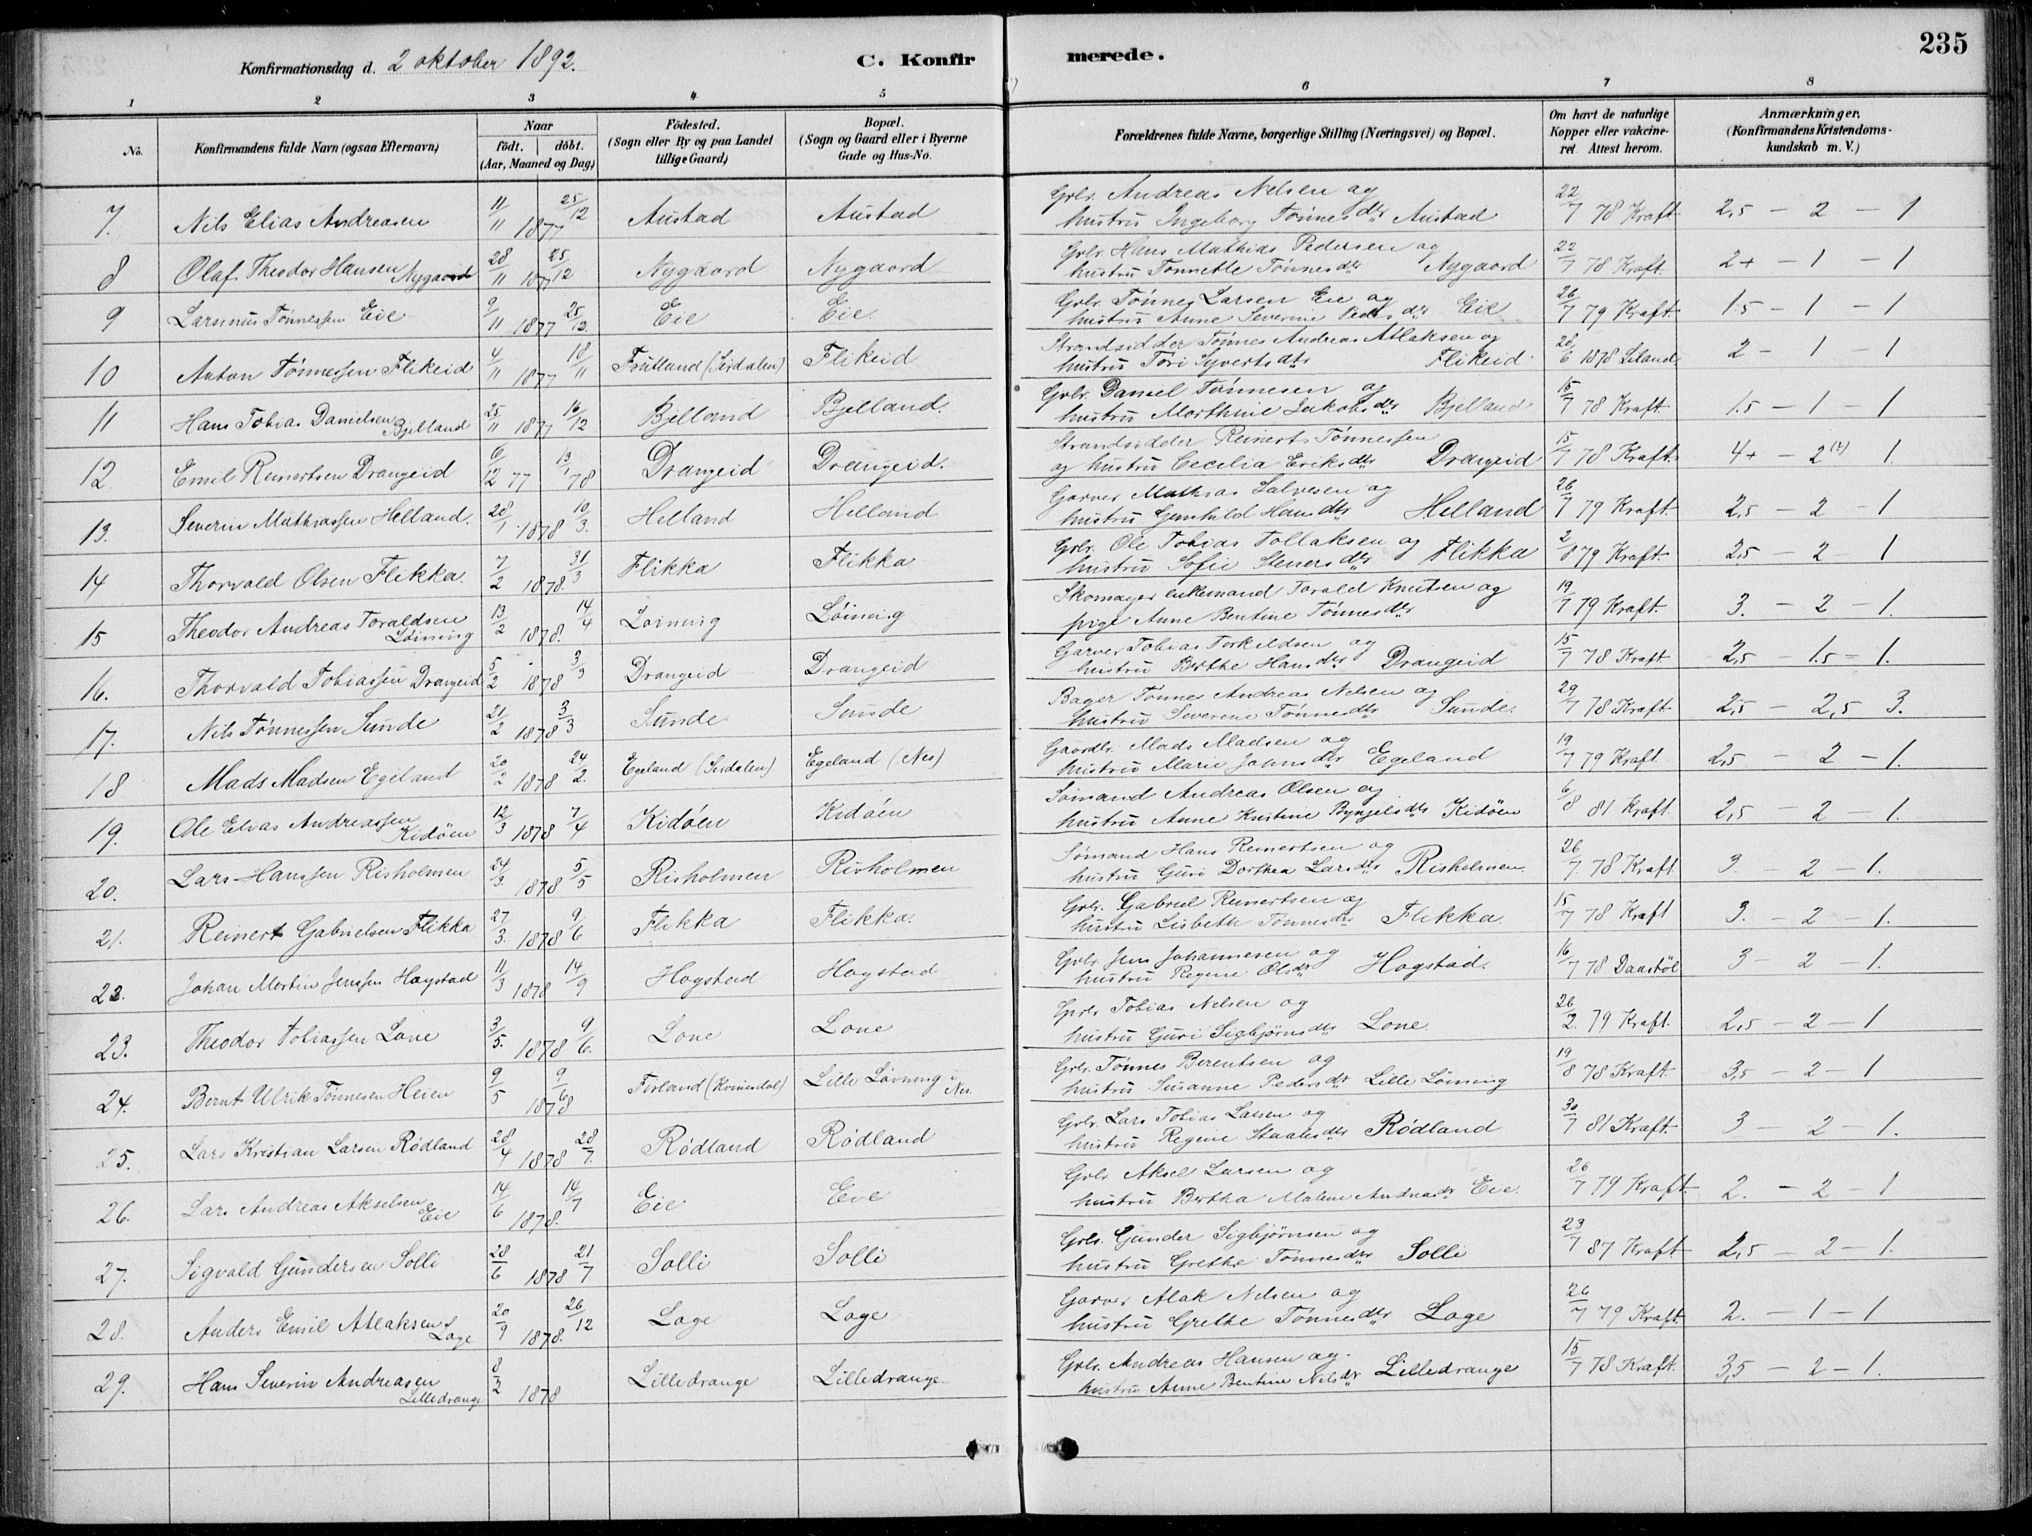 235
Konfirmationsdag d. 2 oktober 1892.
C. Konfirmerede.
1 2 3 4 5 6 7 8
No.
Konfirmandens fulde Navn (ogsaa Efternavn)
Naar
født. døbt.
(Aar, Maaned og Dag)
Födested.
(Sogn eller By og paa Landet
tillige Gaard)
Bopæl.
(Sogn og Gaard eller i Byerne
Gade og Hus-No.
Forældrenes fulde Navne, borgerlige Stilling (Næringsvei) og Bopæl.
Om havt de naturlige
Kopper eller vakcine-
ret. Attest herom.
Anmærkninger.
(Konfirmandens Kristendoms-
kundskab m. V.)
7. Nils Elias Andreasen 11/11 1877 25/12 Austad Austad Grbr. Andreas Nelsen og
hustru Ingeborg Tønnesdtr Austad 22/7 78 Kraft 2,5 – 2 – 1
8 Olaf Theodor Hansen Nygaard 28/11 1877 25/12 Nygaard Nygaard Grbr. Hans Mathias Pedersen og
hustru Tonnette Tønnesdtr Nygaard 22/7 78 Kraft. 2+ – 1 – 1
9 Larsinus Tønnessen Eie 9/11 1877 25/12. Eie Eie. Grbr. Tønnes Larsen Eie og
hustru Anne Severine Pedersdtr Eie 26/7 79 Kraft. 1.5 – 1 – 1
10 Anton Tønnessen Flikeid 4/11 1877 18/11 (Sirdalen) Flikeid Strandsidder Tønnes Andreas Atlaksen og
hustru Tori Syvertsdtr Flikeid 28/6 1878 2 – 1 1
11 Hans Tobias Danielsen Bjelland 25/11 1877 16/12 Bjelland Bjelland. Grbr. Daniel Tønnesen og
hustru Marthine Jakobsdtr Bjelland 15/7 78 Kraft. 1.5 – 1 – 1
12. Emil Reinertsen Drangeid 6/12 77 13/1 78 Drangeid Drangeid. Strandsidder Reinert Tønnessen
og hustru Cecelia Eriksdtr Drangeid 15/7 78 Kraft. 4+ – 2 1.
13. Severin Mathiassen Helland. 28/1 1878 10/3. Helland Helland Garver Mathias Salvesen og
hustru Gunhild Hansdtr Helland 26/7 79 Kraft. 2,5 – 2 – 1
14 Thorvald Olsen Flikka. 7/2 1878. 31/3 Flikka Flikka Grbr. Ole Tobias Tollaksen og
hustru Sofie Steinersdtr Flikka 2/8 79 Kraft. 2,5 – 2 – 1
15 Theodor Andreas Toraldsen Løining 13/2 1878. 14/4 Løining Løining Skomager enkemand Torald Knutsen og
pige Anne Bentine Tønnesdtr 19/7 79 Kraft. 3. – 2 – 1.
16. Thorvald Tobiassen Drangeid 5/2 1878 3/3 Drangeid Drangeid Garver Tobias Torkildsen og
hustru Berthe Hansdtr Drangeid 15/7 78 Kraft 2,5 1.5 – 1.
17. Nils Tønnessen Sunde 21/2 1878 3/3 Sunde Sunde Bager Tønnes Andreas Nelsen og
hustru Severine Tønnesdtr Sunde. 29/7 78 Kraft 2,5 – 2,5 3.
18 Mads Madsen Egeland 20/2 1878 24/2. Egeland (Sirdalen) Egeland (Nes) Gaardbr. Mads Madsen og
hustru Marie Johnsdtr Egeland 19/7 79 Kraft. 2,5 – 2 – 1.
19. Ole Elias Andreassen Kidøen 12/3 1878 7/4 Kidøen Kidøen Sømand Andreas Olsen og
hustru Anne Kristine Kidøen 6/8 81 Kraft. 2,5 – 2 – 1.
20. Lars Hanssen Risholmen 24/3 1878 5/5 Risholmen Risholmen Sømand Hans Reinertsen og
hustru Guri Dorthea Larsdtr Risholmen. 26/7. 78 Kraft 3. – 2 – 1.
21. Reinert Gabrielsen Flikka 27/3. 1878 9/6 Flikka Flikka. Grbr. Gabriel Reinertsen og
hustru Lisbeth Tønnesdtr Flikka. 15/7 78 Kraft 3. – 2 – 1.
22. Johan Martin Jenssen Hogstad 11/3 1878 14/9 Hogstad Hogstad Grbr. Jens Johannesen og
hustru Regine Olsdtr Hogstad. 16/7 78 Daastöl 3 – 2 – 1.
23. Theodor Tobiassen Lone 3/5. 1878 9/6. Lone Lone Grbr. Tobias Nelsen og
hustru Guri Sigbjørnsdtr Lone 26/2. 79 Kraft. 2,5 – 2 – 1
24. Bernt Ulrik Tønnesen Heien 9/5 1878 9/6 (Kvinesdal) Lille Løvning i Nes. Grbr. Tønnes Berentsen og
hustru Susanne Pedersdtr Lille Lønning 19/8 78 Kraft. 3,5 – 2 – 1
25. Lars Kristian Larsen Rødland 28/4 1878 28/7. Rødland Rødland Grbr. Lars Tobias Larsen og
hustru Regine Staalesdtr Rødland 30/7 81 Kraft. 3 – 2 – 1.
26. Lars Andreas Akselsen Eie 14/6 1878. 14/7 Eie Eie Grbr Aksel Larsen og
hustru Bertha Malene Andreadtr Eie. 26/7 79 Kraft. 2. – 2 – 1
27. Sigvald Gundersen Solli 28/6 1878 21/7 Solli Solli Grbr. Gunder Sigbjørnsen og
hustru Grethe Tønnesdtr Solli 23/7 87 Kraft 2,5 – 2 – 1.
28. Anders Emil Atlaksen Loge 20/9 1878. 26/12 Loge Loge Garver Atlak Nelsen og
hustru Grethe Tønnesdtr Loge 26/7 79 Kraft 2. – 1 – 1
29. Hans Severin Andreasen Lilledrange 8/2 1878 Lilledrange Lilledrange Grbr. Andreas Hansen og
hustru Anne Bentine Nilsdtr Lilledrange 15/7 78 Kraft. 3,5 – 2 – 1.